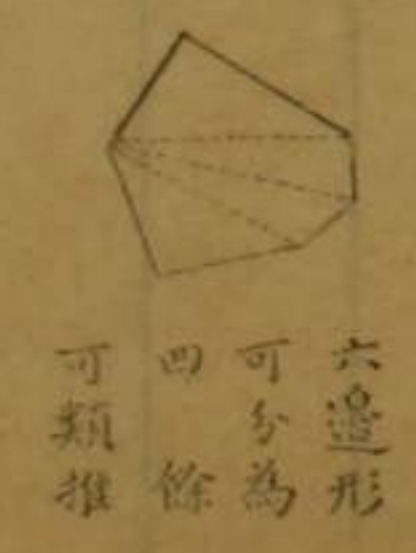 六邊形
可分為
四　餘
可類推